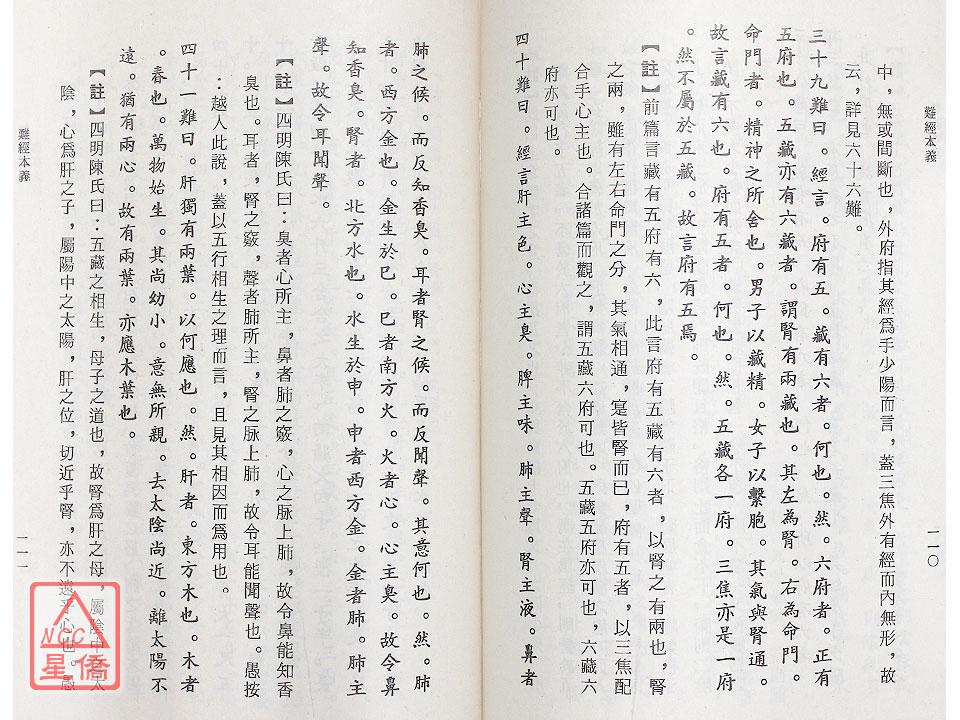 難經本義
一一〇
中，無或間斷也，外府指其經爲手少陽而言，蓋三焦外有經而內無形，故
云，詳見六十六難。
三十九難曰。經言。府有五。藏有六者。何也。然。六府者。正有
五府也。五藏亦有六藏者。謂腎有兩藏也。其左為腎。右為命門。
命門者。精神之所舍也。男子以藏精。女子以繫胞。其氣與腎通。
故言藏有六也。府有五者。何也。然。五藏各一府。三焦亦是一府
。然不屬於五藏。故言府有五焉。
【註】前篇言藏有五府有六，此言府有五藏有六者，以腎之有兩也，腎
之兩，雖有左右命門之分，其氣相通，寔皆腎而已，府有五者，以三焦配
合手心主也。合諸篇而觀之，謂五藏六府可也。五藏五府亦可也，六藏六
府亦可也。
四十難曰。經言肝主色。心主臭。脾主味。肺主聲。腎主液。鼻者
肺之候。而反知香臭。耳者腎之候。而反聞聲。其意何也。然。肺
者。西方金也。金生於巳。巳者南方火。火者心。心主臭。故令鼻
知香臭。腎者。北方水也。水生於申。申者西方金。金者肺。肺主
聲。故令耳聞聲。
【註】四明陳氏曰：臭者心所主，鼻者肺之竅，心之脉上肺，故令鼻能知香
臭也。耳者，腎之竅，聲者肺所主，腎之脉上肺，故令耳能聞聲也。愚按
：越人此說，蓋以五行相生之理而言，且見其相因而爲用也。
四十一難曰。肝獨有兩葉。以何應也。然。肝者。東方木也。木者
。春也。萬物始生。其尚幼小。意無所親。去太陰尚近。離太陽不
遠。猶有兩心。故有兩葉。亦應木葉也。
【註】四明陳氏曰：五藏之相生，母子之道也，故腎爲肝之母，屬陰中之太
陰，心爲肝之子，屬陽中之太陽，肝之位，切近乎腎，亦不遠乎心也。愚
難經本義
一一一
NCC
星僑